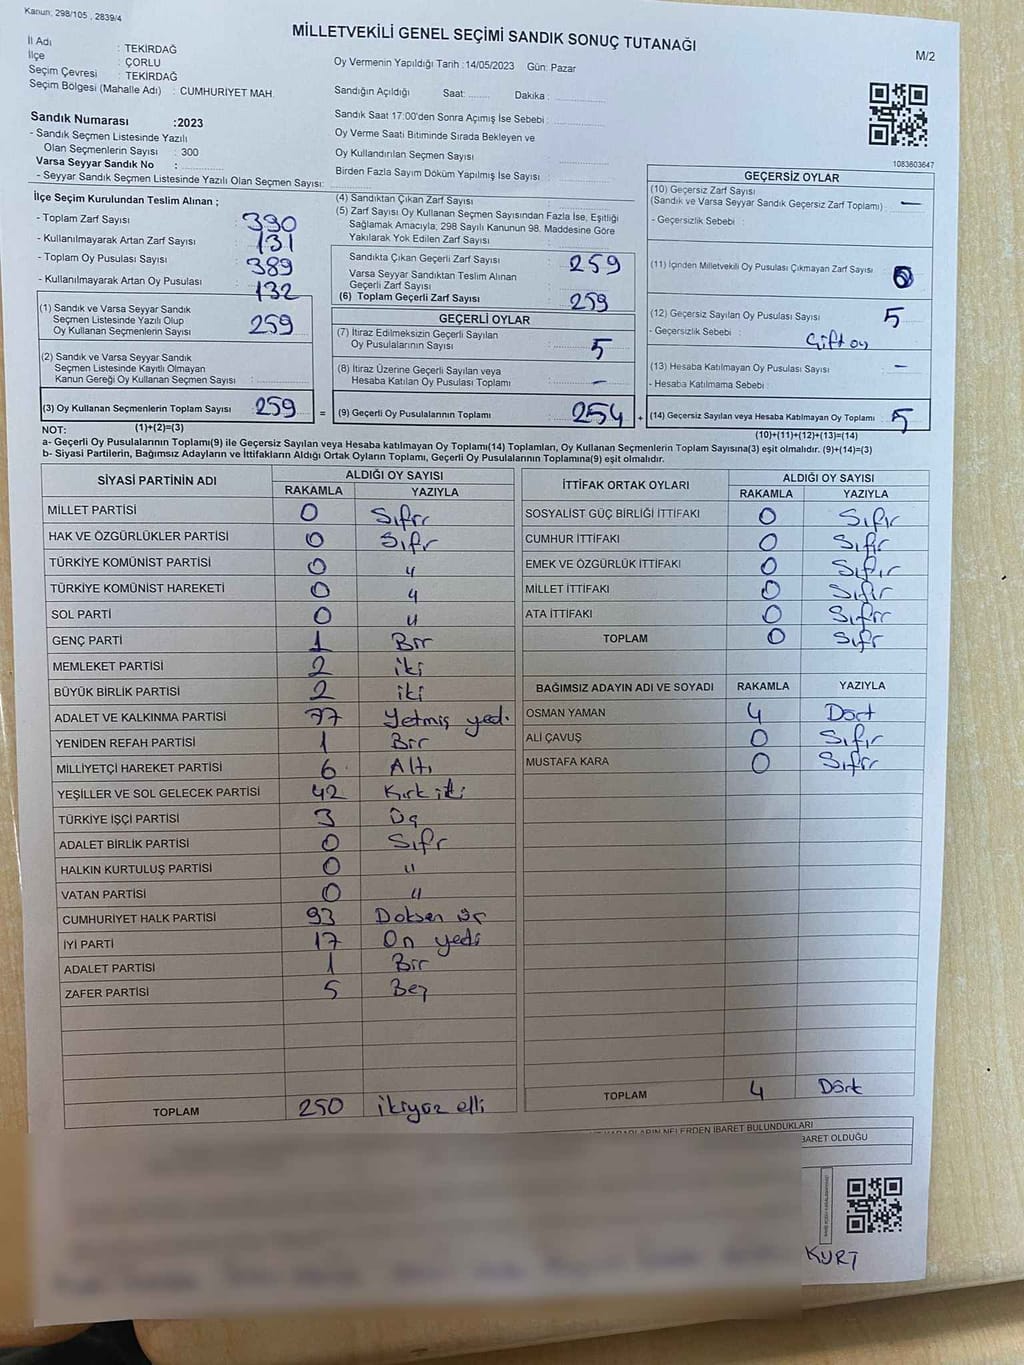 Kanun: 298/105 , 2839/4
MİLLETVEKİLİ GENEL SEÇİMİ SANDIK SONUÇ TUTANAĞI
M/2
İl Adı : TEKİRDAĞ
İlçe : ÇORLU
Seçim Çevresi : TEKİRDAĞ
Seçim Bölgesi (Mahalle Adı) : CUMHURİYET MAH.
Oy Vermenin Yapıldığı Tarih :14/05/2023 Gün: Pazar
Sandığın Açıldığı Saat: ........ Dakika : ..............
Sandık Saat 17:00'den Sonra Açımış İse Sebebi : ..............
Oy Verme Saati Bitiminde Sırada Bekleyen ve
Oy Kullandırılan Seçmen Sayısı : ..............
Birden Fazla Sayım Döküm Yapılmış İse Sayısı : ..............
Sandık Numarası :2023
- Sandık Seçmen Listesinde Yazılı
Olan Seçmenlerin Sayısı : 300
Varsa Seyyar Sandık No : ..............
- Seyyar Sandık Seçmen Listesinde Yazılı Olan Seçmen Sayısı: ..............
1083603647
İlçe Seçim Kurulundan Teslim Alınan ;
- Toplam Zarf Sayısı : 390
- Kullanılmayarak Artan Zarf Sayısı : 131
- Toplam Oy Pusulası Sayısı : 389
- Kullanılmayarak Artan Oy Pusulası : 132
(1) Sandık ve Varsa Seyyar Sandık
Seçmen Listesinde Yazılı Olup
Oy Kullanan Seçmenlerin Sayısı : 259
(2) Sandık ve Varsa Seyyar Sandık
Seçmen Listesinde Kayıtlı Olmayan
Kanun Gereği Oy Kullanan Seçmen Sayısı : ..............
(3) Oy Kullanan Seçmenlerin Toplam Sayısı : 259 =
(1)+(2)=(3)
(4) Sandıktan Çıkan Zarf Sayısı : ..............
(5) Zarf Sayısı Oy Kullanan Seçmen Sayısından Fazla İse, Eşitliği
Sağlamak Amacıyla; 298 Sayılı Kanunun 98. Maddesine Göre
Yakılarak Yok Edilen Zarf Sayısı : ..............
Sandıkta Çıkan Geçerli Zarf Sayısı : 259
Varsa Seyyar Sandıktan Teslim Alınan
Geçerli Zarf Sayısı : ..............
(6) Toplam Geçerli Zarf Sayısı : 259
GEÇERLİ OYLAR
(7) İtiraz Edilmeksizin Geçerli Sayılan
Oy Pusulalarının Sayısı : 5
(8) İtiraz Üzerine Geçerli Sayılan veya
Hesaba Katılan Oy Pusulası Toplamı : –
(9) Geçerli Oy Pusulalarının Toplamı : 254 +
GEÇERSİZ OYLAR
(10) Geçersiz Zarf Sayısı
(Sandık ve Varsa Seyyar Sandık Geçersiz Zarf Toplamı) : —
- Geçersizlik Sebebi :
(11) İçinden Milletvekili Oy Pusulası Çıkmayan Zarf Sayısı : 0
(12) Geçersiz Sayılan Oy Pusulası Sayısı : 5
- Geçersizlik Sebebi : Çift oy
(13) Hesaba Katılmayan Oy Pusulası Sayısı : –
- Hesaba Katılmama Sebebi :
(14) Geçersiz Sayılan veya Hesaba Katılmayan Oy Toplamı : 5
(10)+(11)+(12)+(13)=(14)
NOT:
a- Geçerli Oy Pusulalarının Toplamı(9) ile Geçersiz Sayılan veya Hesaba katılmayan Oy Toplamı(14) Toplamları, Oy Kullanan Seçmenlerin Toplam Sayısına(3) eşit olmalıdır. (9)+(14)=(3)
b- Siyasi Partilerin, Bağımsız Adayların ve İttifakların Aldığı Ortak Oyların Toplamı, Geçerli Oy Pusulalarının Toplamına(9) eşit olmalıdır.
SİYASİ PARTİNİN ADI ALDIĞI OY SAYISI
RAKAMLA YAZIYLA
MİLLET PARTİSİ 0 Sıfır
HAK VE ÖZGÜRLÜKLER PARTİSİ 0 Sıfır
TÜRKİYE KOMÜNİST PARTİSİ 0 "
TÜRKİYE KOMÜNİST HAREKETİ 0 "
SOL PARTİ 0 "
GENÇ PARTİ 1 Bir
MEMLEKET PARTİSİ 2 iki
BÜYÜK BİRLİK PARTİSİ 2 iki
ADALET VE KALKINMA PARTİSİ 77 Yetmiş yedi
YENİDEN REFAH PARTİSİ 1 Bir
MİLLİYETÇİ HAREKET PARTİSİ 6 Altı
YEŞİLLER VE SOL GELECEK PARTİSİ 42 Kırk iki
TÜRKİYE İŞÇİ PARTİSİ 3 Üç
ADALET BİRLİK PARTİSİ 0 Sıfır
HALKIN KURTULUŞ PARTİSİ 0 "
VATAN PARTİSİ 0 "
CUMHURİYET HALK PARTİSİ 93 Doksan üç
İYİ PARTİ 17 On yedi
ADALET PARTİSİ 1 Bir
ZAFER PARTİSİ 5 Beş
TOPLAM 250 ikiyüz elli
İTTİFAK ORTAK OYLARI ALDIĞI OY SAYISI
RAKAMLA YAZIYLA
SOSYALİST GÜÇ BİRLİĞİ İTTİFAKI 0 Sıfır
CUMHUR İTTİFAKI 0 Sıfır
EMEK VE ÖZGÜRLÜK İTTİFAKI 0 Sıfır
MİLLET İTTİFAKI 0 Sıfır
ATA İTTİFAKI 0 Sıfır
TOPLAM 0 Sıfır
BAĞIMSIZ ADAYIN ADI VE SOYADI RAKAMLA YAZIYLA
OSMAN YAMAN 4 Dört
ALİ ÇAVUŞ 0 Sıfır
MUSTAFA KARA 0 Sıfır
TOPLAM 4 Dört
NELERDEN İBARET BULUNDUKLARI
BARET OLDUĞU
KURT